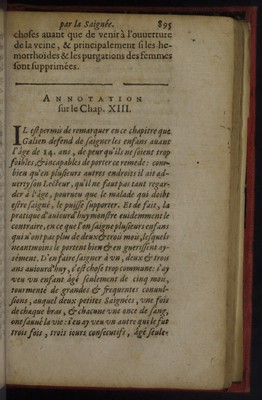 par la Saignée. 895
choses auant que de venir à l'ouuerture
de la veine, & principalement si les he-
morrhoïdes & les purgations des femmes
sont supprimées.
ANNOTATION
sur le Chap. XIII.
IL est permis de remarquer en ce chapitre que
Galien defend de saigner les enfans auant
l'âge de 14. ans, de peur qu'ils ne soient trop
foibles, & incapables de porter ce remede: com-
bien qu'en plusieurs autres endroits il ait ad-
uerty son Lecteur, qu'il ne faut pas tant regar-
der à l'âge, pourueu que le malade qui doibt
estre saigné, le puisse supporter. Et de fait, la
pratique d'auiourd'huy monstre euidemment le
contraire, en ce que l'on saigne plusieurs enfans
qui n'ont pas plus de deux & trois mois, lesquels
neantmoins le portent bien & en guerissent ay-
sément. D'en faire saigner à vn, deux & trois
ans auiourd'huy, c'est chose trop commune: i'ay
veu vn enfant âgé seulement de cinq mois,
tourmenté de grandes & frequentes conuul-
sions, auquel deux petites Saignées, vne fois
de chaque bras, & chacune vne once de sang,
ont sauué la vie: i'en ay veu vn autre qui le fut
trois fois, trois iours consecutifs, âgé seule-